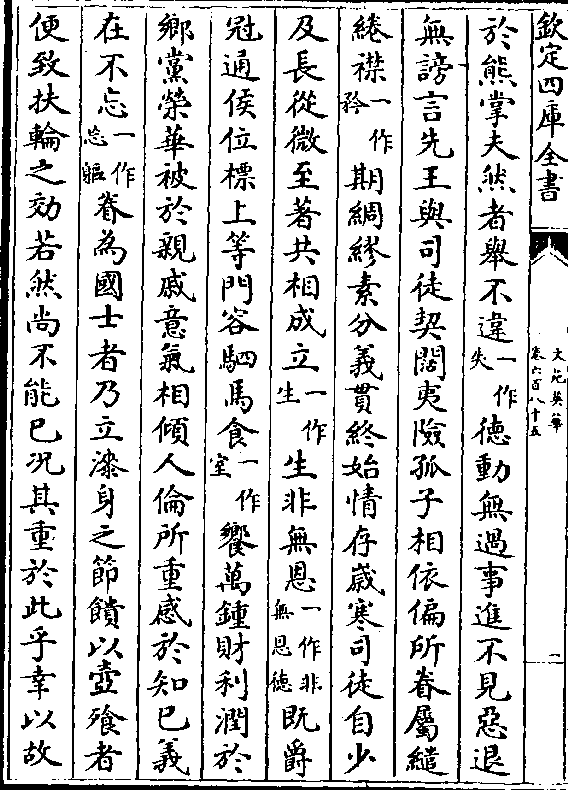 欽定四庫全書
文苑英華
卷六百八十五
一
於熊掌夫然者舉不違一作失德動無過事進不見惡退
無謗言先王與司徒契闊夷險孤子相依偏所眷屬繾
綣襟一作矜期綢繆素分義貫終始情存歳寒司徒自少
及長從微至著共相成立一作生生非無恩一作非無恩德既爵
冠通侯位標上等門容駟馬食一作室饗萬鍾財利潤於
鄉黨榮華被於親戚意氣相傾人倫所重感於知已義
在不忘一作忘軀眷為國士者乃立漆身之節饋以壺飱者
便致扶輪之効若然尚不能已况其重於此乎幸以故